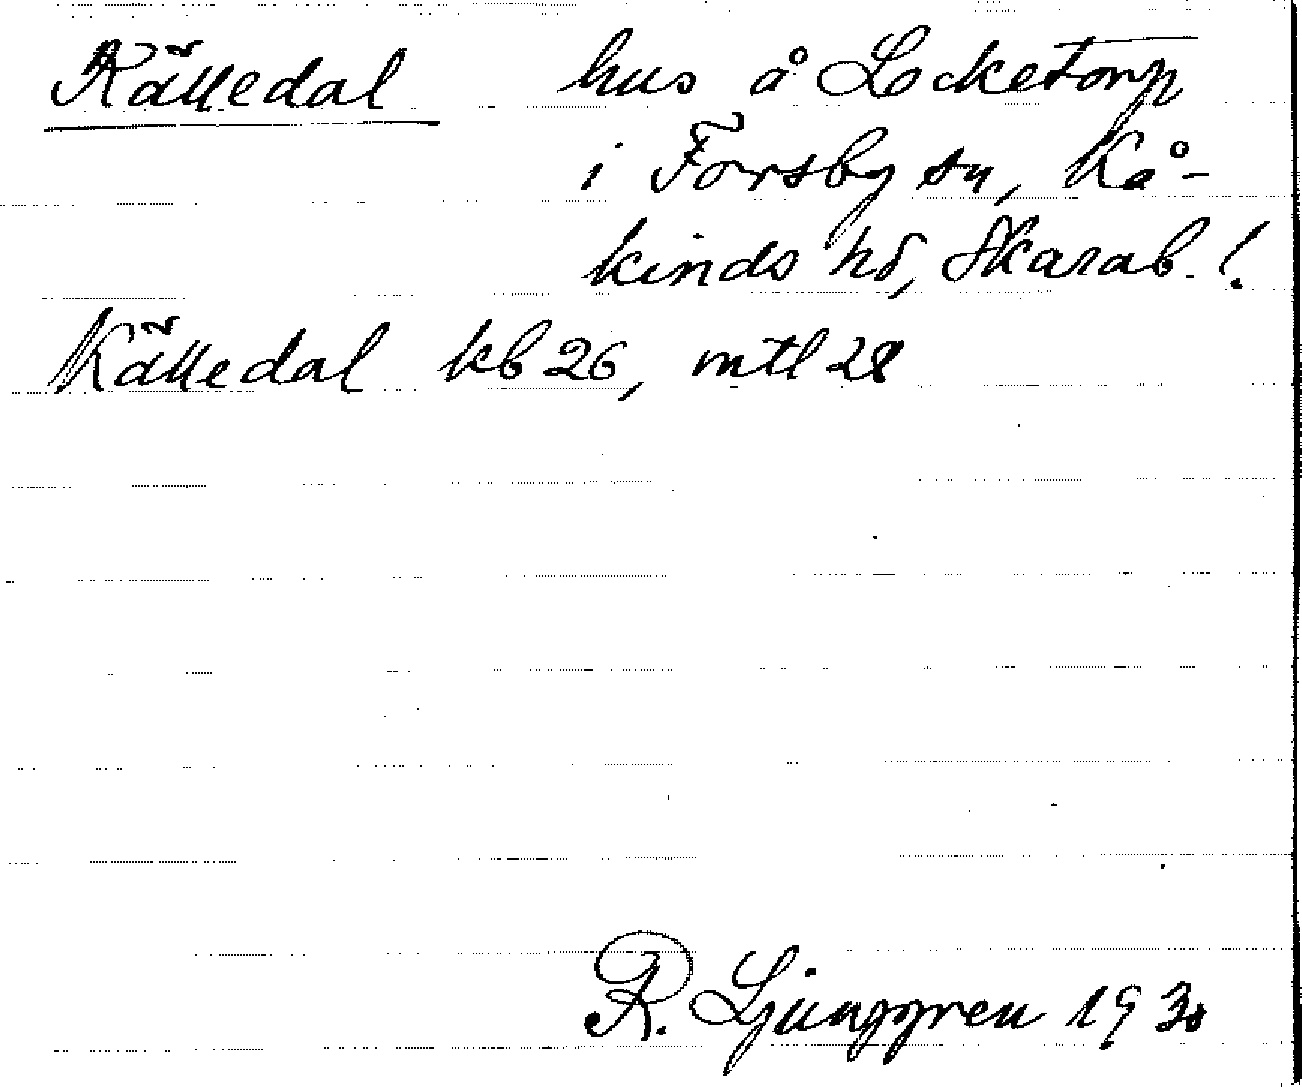 Källedal hus å Locketorp
i Forsby sn, Kå-
kinds hd, Skarab. l.
Källedal kb 26, mtl 28
R. Ljunggren 1930